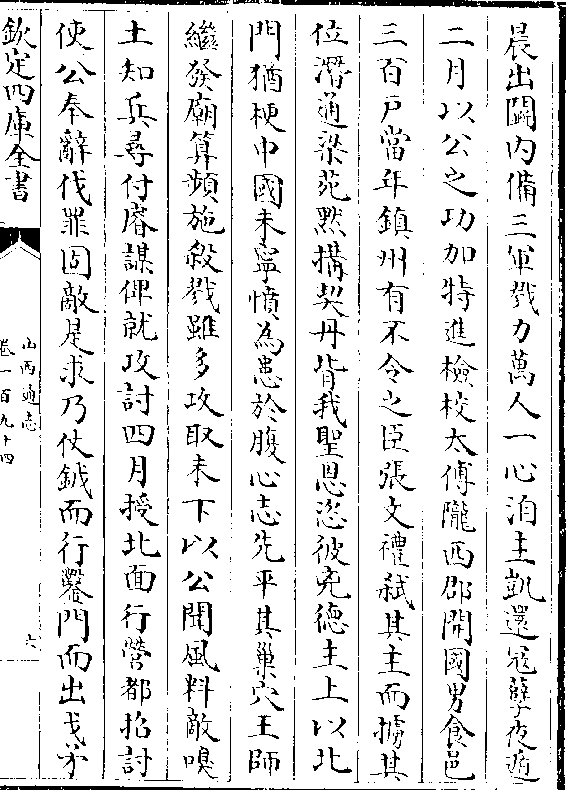 晨出闘内備三軍戮力萬人一心洎主凱還冦孽夜遁
二月以公之功加特進檢校太傅隴西郡開國男食邑
三百戸當年鎮州有不令之臣張文禮弑其主而擄其
位潛通梁苑黙搆契丹背我聖恩恣彼克德主上以北
門猶梗中國未寧憤為患於腹心志先平其巢穴王師
繼發廟算頻施殺戮雖多攻取未下以公聞風料敵嗅
土知兵尋付睿謀俾就攻討四月授北面行營都招討
使公奉辭伐罪固敵是求乃仗鉞而行鑿門而出戈矛
欽定四庫全書
山西通志
卷一百九十四
六